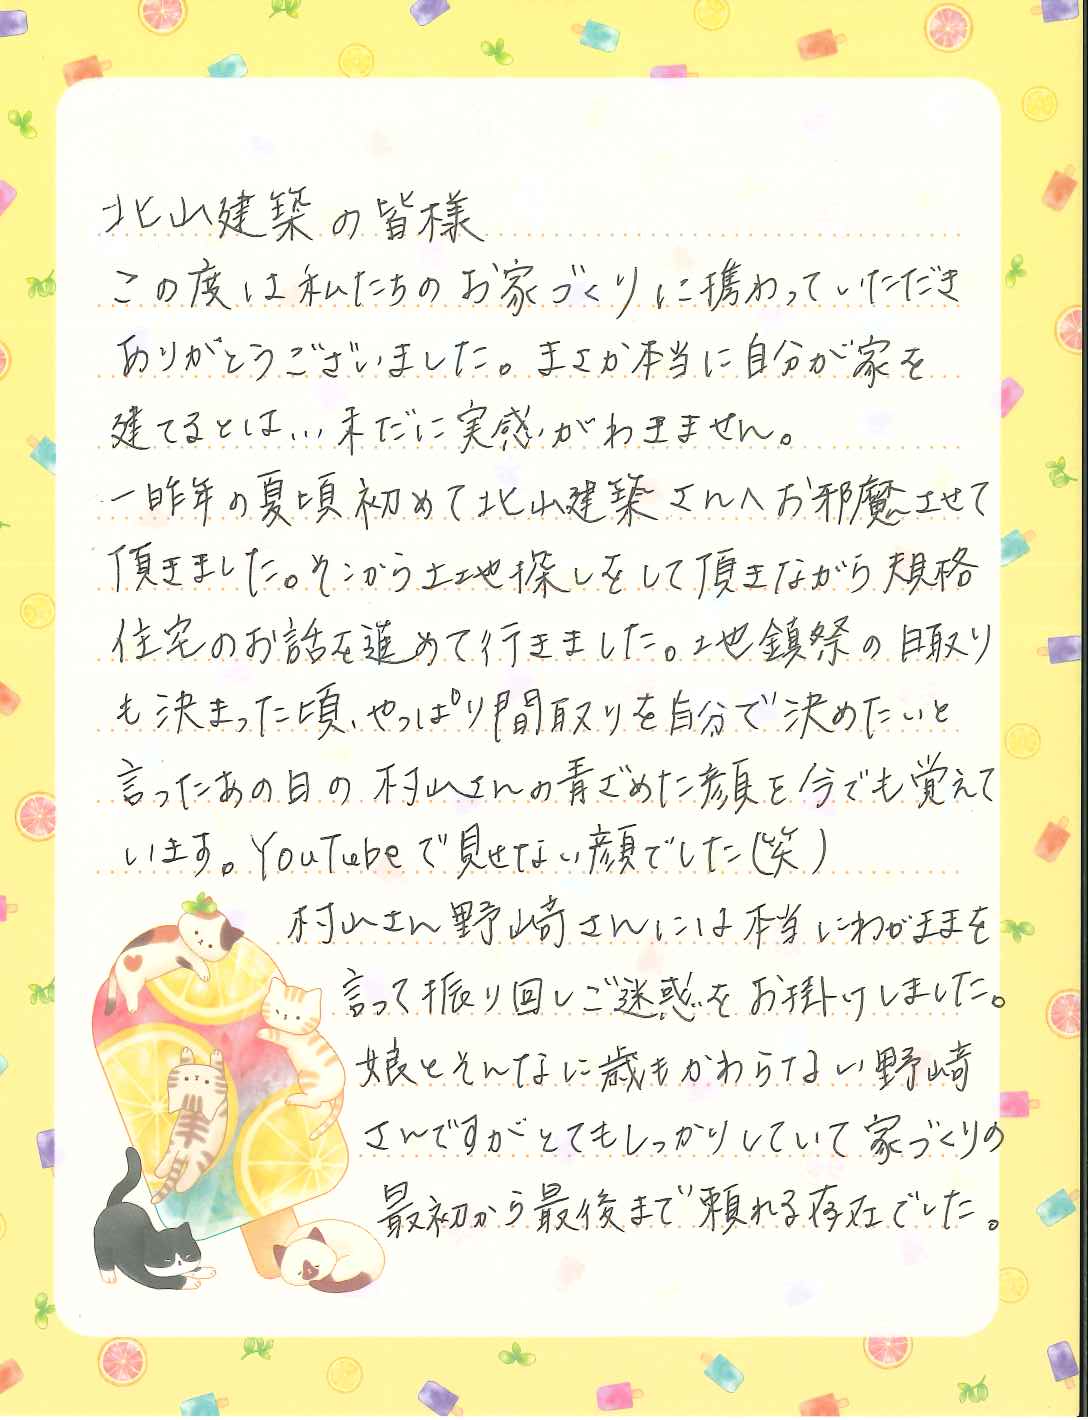 北山建築の皆様
この度は私たちのお家づくりに携わっていただき
ありがとうございました。まさか本当に自分が家を
建てるとは... 未だに実感がわきません。
一昨年の夏頃初めて北山建築さんへお邪魔させて
頂きました。そこから土地探しをして頂きながら規格
住宅のお話を進めて行きました。地鎮祭の日取り
も決まった頃、やっぱり間取りを自分で決めたいと
言ったあの日の村山さんの青ざめた顔を今でも覚えて
います。YouTubeで見せない顔でした(笑)
村山さん野﨑さんには本当にわがままを
言って振り回しご迷惑をお掛けしました。
娘とそんなに歳もかわらない野﨑
さんですがとてもしっかりしていて家づくりの
最初から最後まで頼れる存在でした。